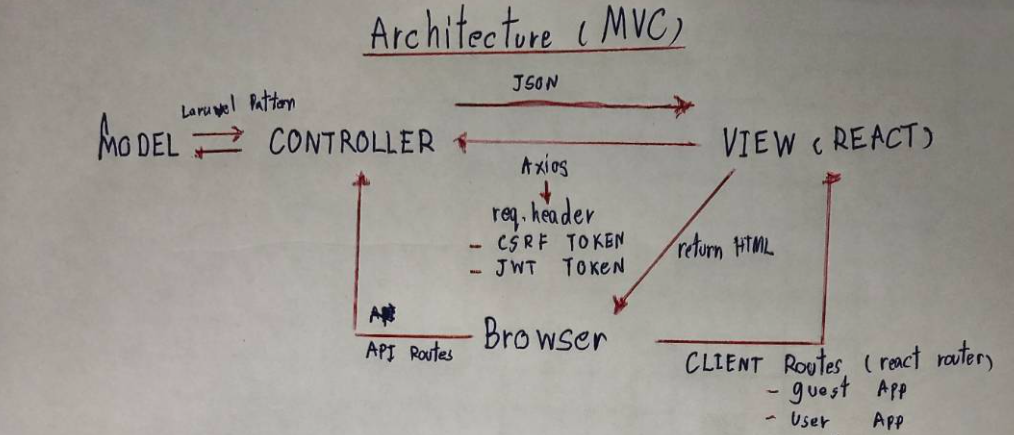 Architecture (MVC)
JSON
Laravel Pattern
MODEL
CONTROLLER
VIEW (REACT)
Axios
req.header
- CSRF TOKEN
- JWT TOKEN
return HTML
Browser
API Routes
CLIENT Routes (react router)
- guest App
- User App